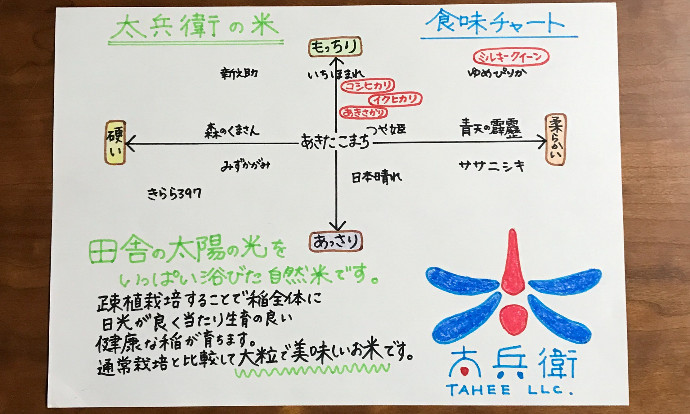 太兵衛の米
食味チャート
もっちり
ミルキークイーン
新之助
いちほまれ
ゆめぴりか
コシヒカリ
イクヒカリ
あきさかり
硬い
森のくまさん
あきたこまち
つや姫
青天の霹靂
柔らかい
みずかがみ
日本晴れ
ササニシキ
きらら397
あっさり
田舎の太陽の光を
いっぱい浴びた自然米です。
疎植栽培することで稲全体に
日光が良く当たり生育の良い
健康な稲が育ちます。
通常栽培と比較して大粒で美味しいお米です。
太兵衛
TAHEE LLC.